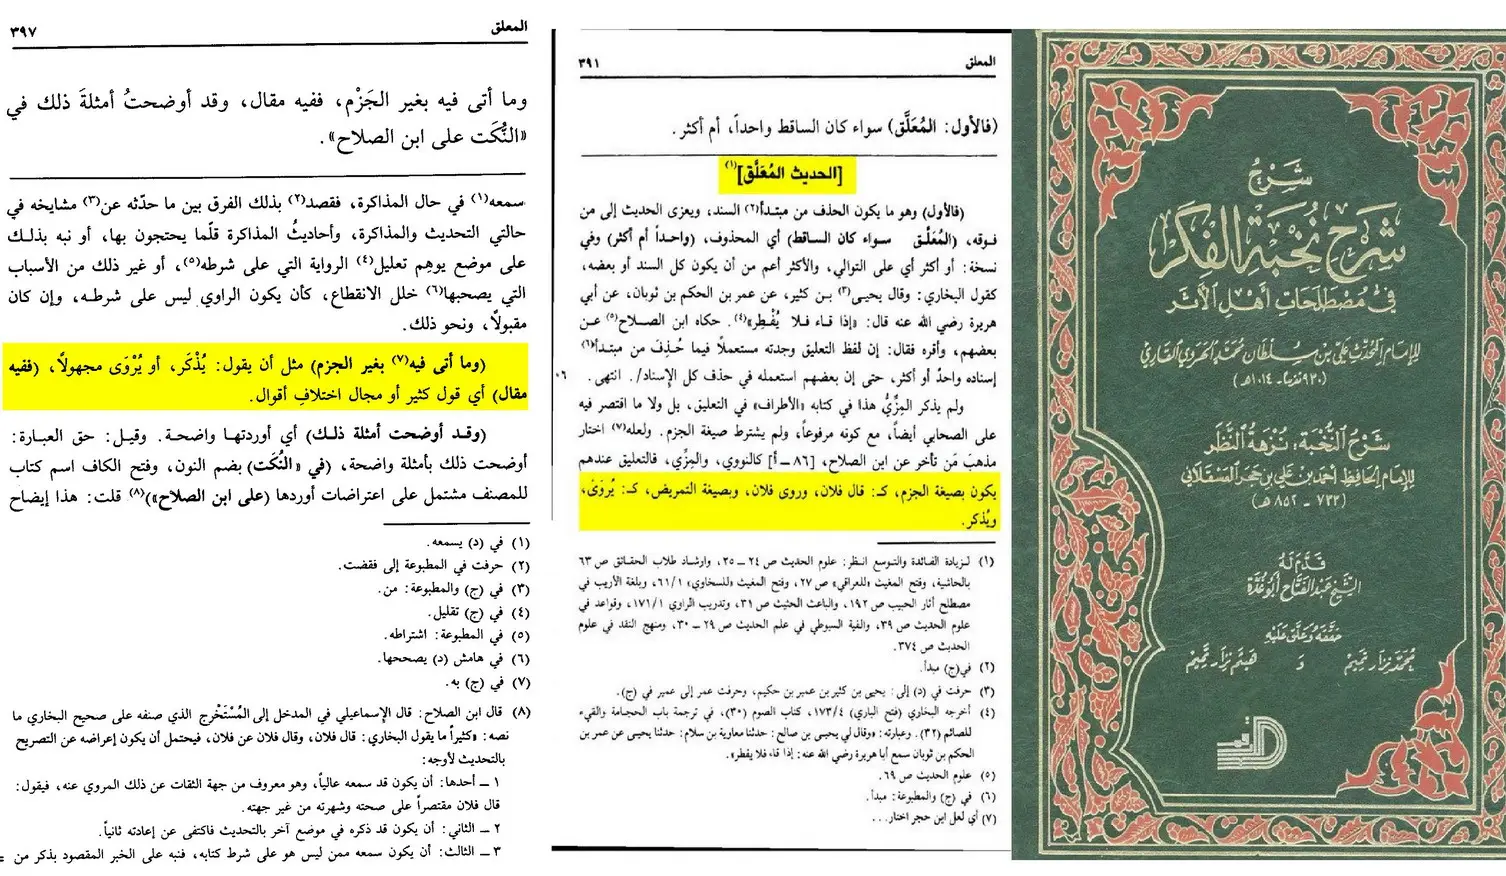 المعلق
٣٩٧
وما أتى فيه بغير الجَزْم، ففيه مقال، وقد أوضحتُ أمثلةَ ذلك في
«النُّكَت على ابن الصلاح».
سمعه(١) في حال المذاكرة، فقصد(٢) بذلك الفرق بين ما حدّثه عن(٣) مشايخه في
حالتي التحديث والمذاكرة، وأحاديثُ المذاكرة قلّما يحتجون بها، أو نبه بذلك
على موضع يوهِم تعليل(٤) الرواية التي على شرطه(٥)، أو غير ذلك من الأسباب
التي يصحبها(٦) خلل الانقطاع، كأن يكون الراوي ليس على شرطه، وإن كان
مقبولاً، ونحو ذلك.
(وما أتى فيه(٧) بغير الجزم) مثل أن يقول: يُذْكَر، أو يُرْوَى مجهولاً، (ففيه
مقال) أي قول كثير أو مجال اختلافِ أقوال.
(وقد أوضحت أمثلة ذلك) أي أوردتها واضحة. وقيل: حق العبارة:
أوضحت ذلك بأمثلة واضحة، (في «النُّكَت) بضم النون، وفتح الكاف اسم كتاب
للمصنف مشتمل على اعتراضات أوردها (على ابن الصلاح»)(٨) قلت: هذا إيضاح
(١) في (د) يسمعه.
(٢) حرفت في المطبوعة إلى فقضت.
(٣) في (ج) والمطبوعة: من.
(٤) في (ج) تقليل.
(٥) في المطبوعة: اشتراطه.
(٦) في هامش (د) يصححها.
(٧) في (ج) به.
(٨) قال ابن الصلاح: قال الإسماعيلي في المدخل إلى المُسْتَخْرج الذي صنفه على صحيح البخاري ما
نصه: «كثيراً ما يقول البخاري: قال فلان، وقال فلان عن فلان، فيحتمل أن يكون إعراضه عن التصريح
بالتحديث لأوجه:
١ ــ أحدها: أن يكون قد سمعه عالياً، وهو معروف من جهة الثقات عن ذلك المروي عنه، فيقول:
قال فلان مقتصراً على صحته وشهرته من غير جهته.
٢ ــ الثاني: أن يكون قد ذكره في موضع آخر بالتحديث فاكتفى عن إعادته ثانياً.
٣ ــ الثالث: أن يكون سمعه ممن ليس هو على شرط كتابه، فنبه على الخبر المقصود بذكر من =
المعلق
٣٩١
(فالأول: المُعَلَّق) سواء كان الساقط واحداً، أم أكثر.
[الحديث المُعَلَّق](١)
(فالأول) وهو ما يكون الحذف من مبتدأ(٢) السند، ويعزى الحديث إلى من
فوقه، (المُعَلَّق سواء كان الساقط) أي المحذوف، (واحداً أم أكثر) وفي
نسخة: أو أكثر أي على التوالي، والأكثر أعم من أن يكون كل السند أو بعضه،
كقول البخاري: وقال يحيى(٣) بن كثير، عن عمر بن الحكم بن ثوبان، عن أبي
هريرة رضي الله عنه قال: «إذا قاء فلا يُفْطِر»(٤). حكاه ابن الصلاح(٥) عن
بعضهم، وأقره فقال: إن لفظ التعليق وجدته مستعملاً فيما حُذِف من مبتدأ(٦)
إسناده واحدٌ أو أكثر، حتى إن بعضهم استعمله في حذف كل الإسناد/. انتهى.
ولم يذكر المِزِّيُّ هذا في كتابه «الأطراف» في التعليق، بل ولا ما اقتصر فيه
على الصحابي أيضاً، مع كونه مرفوعاً، ولم يشترط صيغة الجزم. ولعله(٧) اختار
مذهبَ مَن تأخر عن ابن الصلاح، [٨٦ ــ أ] كالنووي، والمِزِّي، فالتعليق عندهم
يكون بصيغة الجزم، كـ: قال فلان، وروى فلان، وبصيغة التمريض، كـ: يُروَى،
ويُذكر.
(١) لزيادة الفائدة والتوسع انظر: علوم الحديث ص ٢٤ ــ ٢٥، وإرشاد طلاب الحقائق ص ٦٣
بالحاشية، وفتح المغيث «للعراقي» ص ٢٧، وفتح المغيث «للسخاوي» ٦١/١، وبلغة الأريب في
مصطلح آثار الحبيب ص ١٩٢، والباعث الحثيث ص ٣١، وتدريب الراوي ١٧١/١، وقواعد في
علوم الحديث ص ٣٩، وألفية السيوطي في علم الحديث ص ٢٩ ــ ٣٠، ومنهج النقد في علوم
الحديث ص ٣٧٤.
(٢) في(ج) مبدأ.
(٣) حرفت في (د) إلى: يحيى بن كثير بن عمير بن حكيم، وحرفت عمر إلى عمير في (ج).
(٤) أخرجه البخاري (فتح الباري) ١٧٣/٤، كتاب الصوم (٣٠)، في ترجمة باب الحجامة والقيء
للصائم (٣٢). وعبارته: «وقال لي يحيى بن صالح: حدثنا معاوية بن سلام: حدثنا يحيى عن عمر بن
الحكم بن ثوبان سمع أبا هريرة رضي الله عنه: إذا قاء فلا يفطر».
(٥) علوم الحديث ص ٦٩.
(٦) في (ج) والمطبوعة: مبدأ.
(٧) أي لعل ابن حجر اختار...
شرح
شرح نخبة الفكر
في مصطلحات أهل الأثر
للإمام المحدث علي بن سلطان محمد الهروي القاري
(٩٣٠ تقريباً ـ ١٠١٤ هـ)
شرح النخبة: نزهة النظر
للإمام الحافظ أحمد بن علي بن حجر العسقلاني
(٧٧٣ ـ ٨٥٢ هـ)
قدم له
الشيخ عبد الفتاح أبو غدة
حققه وعلق عليه
محمد نزار تميم و هيثم نزار تميم